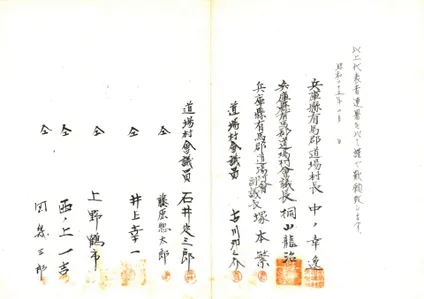 以上代表者連署を以て謹で歎願致します。
昭和二十五年 月 日
兵庫縣有馬郡道場村長 中ノ幸逸
兵庫縣有馬郡道場村會議長 桐山龍治
兵庫縣有馬郡道場村會副議長 塚本榮
道場村會議員 古川
道場村會議員 石井定三郎
仝 藤原惣太郎
仝 井上幸一
仝 上野鶴市
仝 西ノ上一吉
仝 三郎